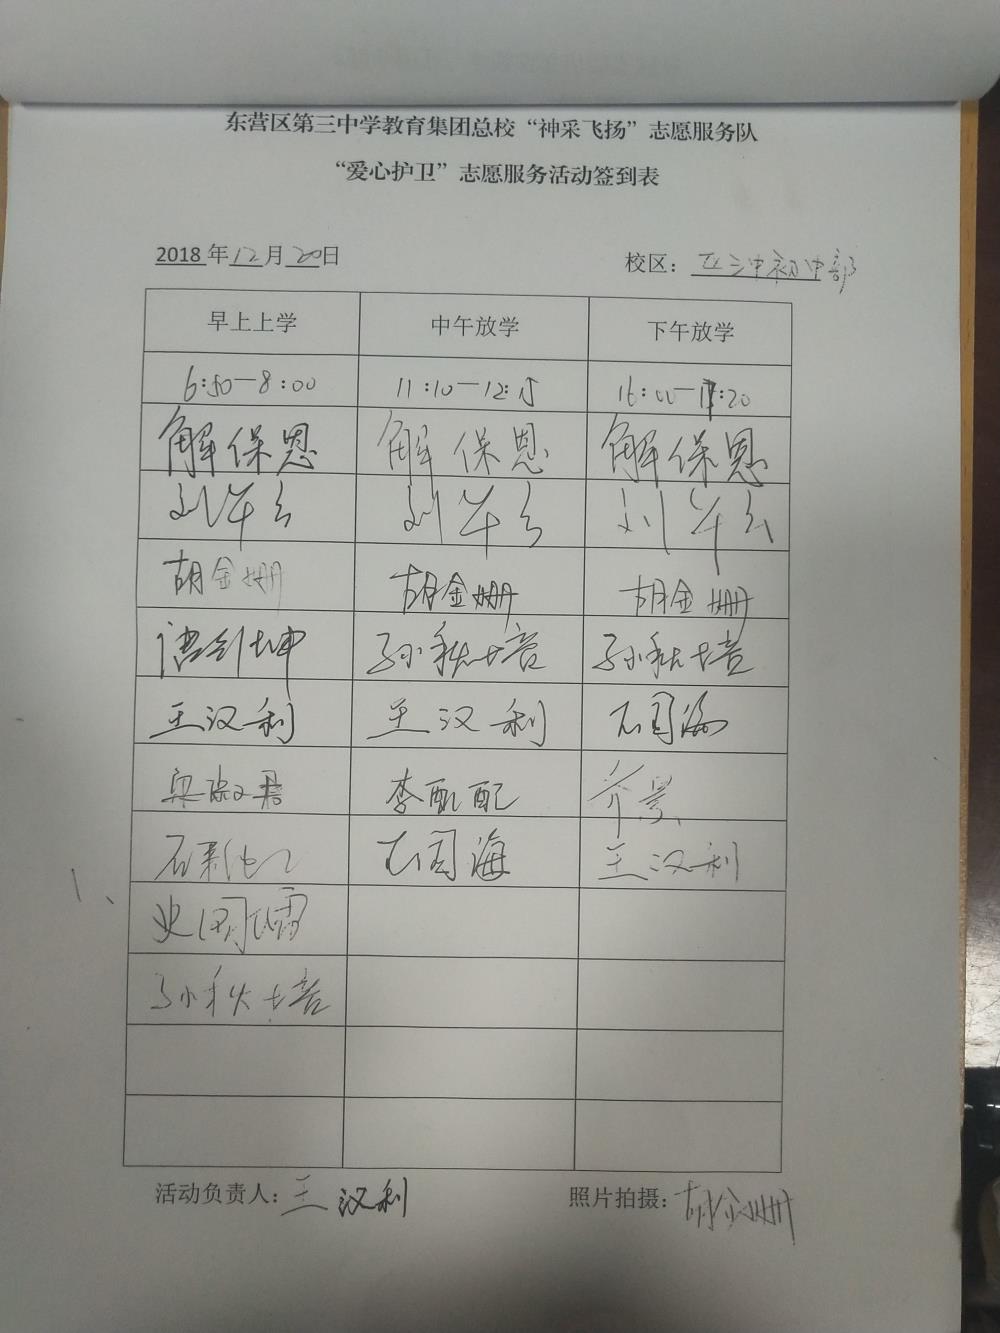 东营区第三中学教育集团总校“神采飞扬”志愿服务队
“爱心护卫”志愿服务活动签到表
2018年12月20日 校区：区三中初中部
早上上学 中午放学 下午放学
6:50-8:00 11:10-12:15 16:00-17:20
解保恩 解保恩 解保恩
刘华云 刘华云 刘华云
胡金姗 胡金姗 胡金姗
孙秋培 孙秋培
王汉利 王汉利 石国海
李配配
石国海 王汉利
孙秋培
活动负责人：王汉利 照片拍摄：胡金姗